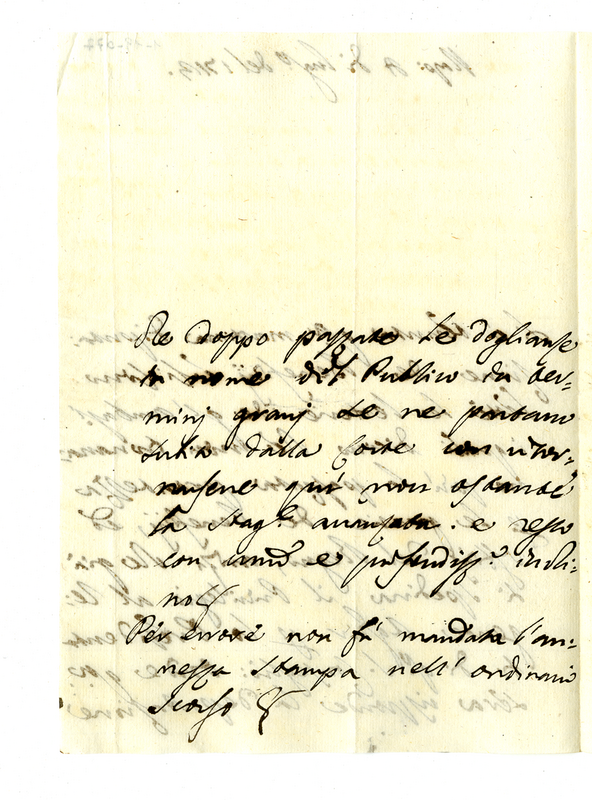 Re doppo passate le doglianse
in nome del Publico da ter-
minj gravj se ne partano
dalla Corte con ritor-
narsene qui non ostante
la stag.e avansata. e resto
con umᵈ e profondiss.o inchi-
no
Per errore non fù mandata l'an-
nessa stampa nell'ordinario
scorso